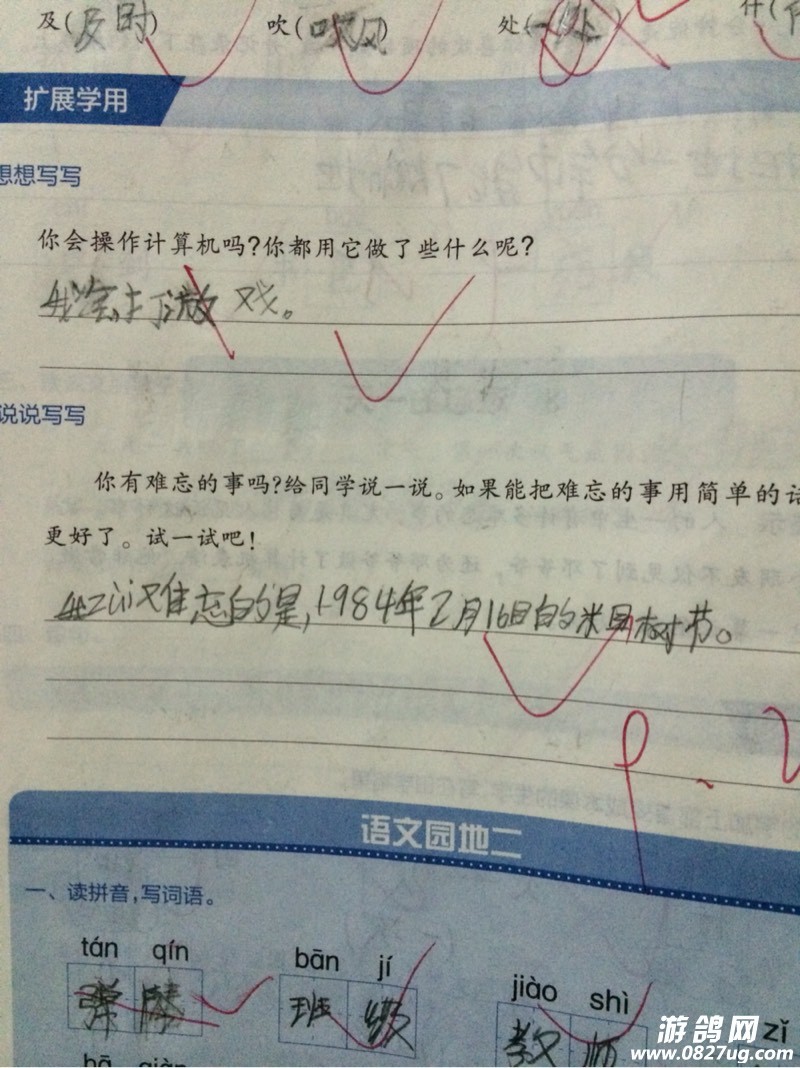 及(及时) 吹(吹风) 处(处) 什(
扩展学用
想想写写
你会操作计算机吗?你都用它做了些什么呢?
我会打游戏。
说说写写
你有难忘的事吗?给同学说一说。如果能把难忘的事用简单的话
更好了。试一试吧!
难忘的是,1984年2月16日的米目树节。
语文园地二
一、读拼音,写词语。
tán qín bān jí jiào shì zǐ
弹琴 班级 教师
游鸽网
www.0827ug.com